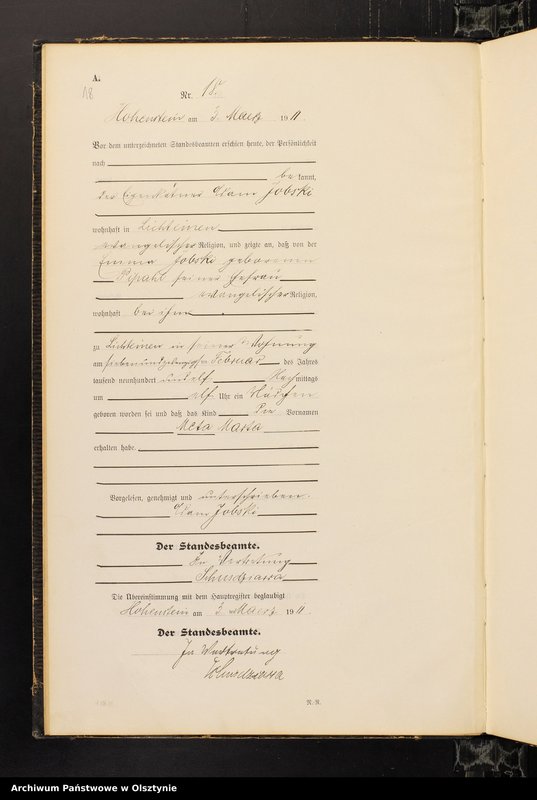 A.
18
Nr. 18.
Hohenstein am 3. Maerz 1911.
Vor dem unterzeichneten Standesbeamten erschien heute, der Persönlichkeit
nach
be kannt,
der Eigenkätner Adam Jobski
wohnhaft in Lichteinen
evangelischer Religion, und zeigte an, daß von der
Emma Jobski geborenen
seiner Ehefrau
evangelischer Religion,
wohnhaft bei ihm
zu Lichteinen in seiner Wohnung
am siebenundzwanzigsten Februar des Jahres
tausend neunhundert und elf Nachmittags
um elf Uhr ein Mädchen
geboren worden sei und daß das Kind die Vornamen
Meta Marta
erhalten habe.
Vorgelesen, genehmigt und unterschrieben.
Adam Jobski
Der Standesbeamte.
In Vertretung
Die Übereinstimmung mit dem Hauptregister beglaubigt
Hohenstein am 3. Maerz 1911.
Der Standesbeamte.
In Vertretung
Archiwum Państwowe w Olsztynie